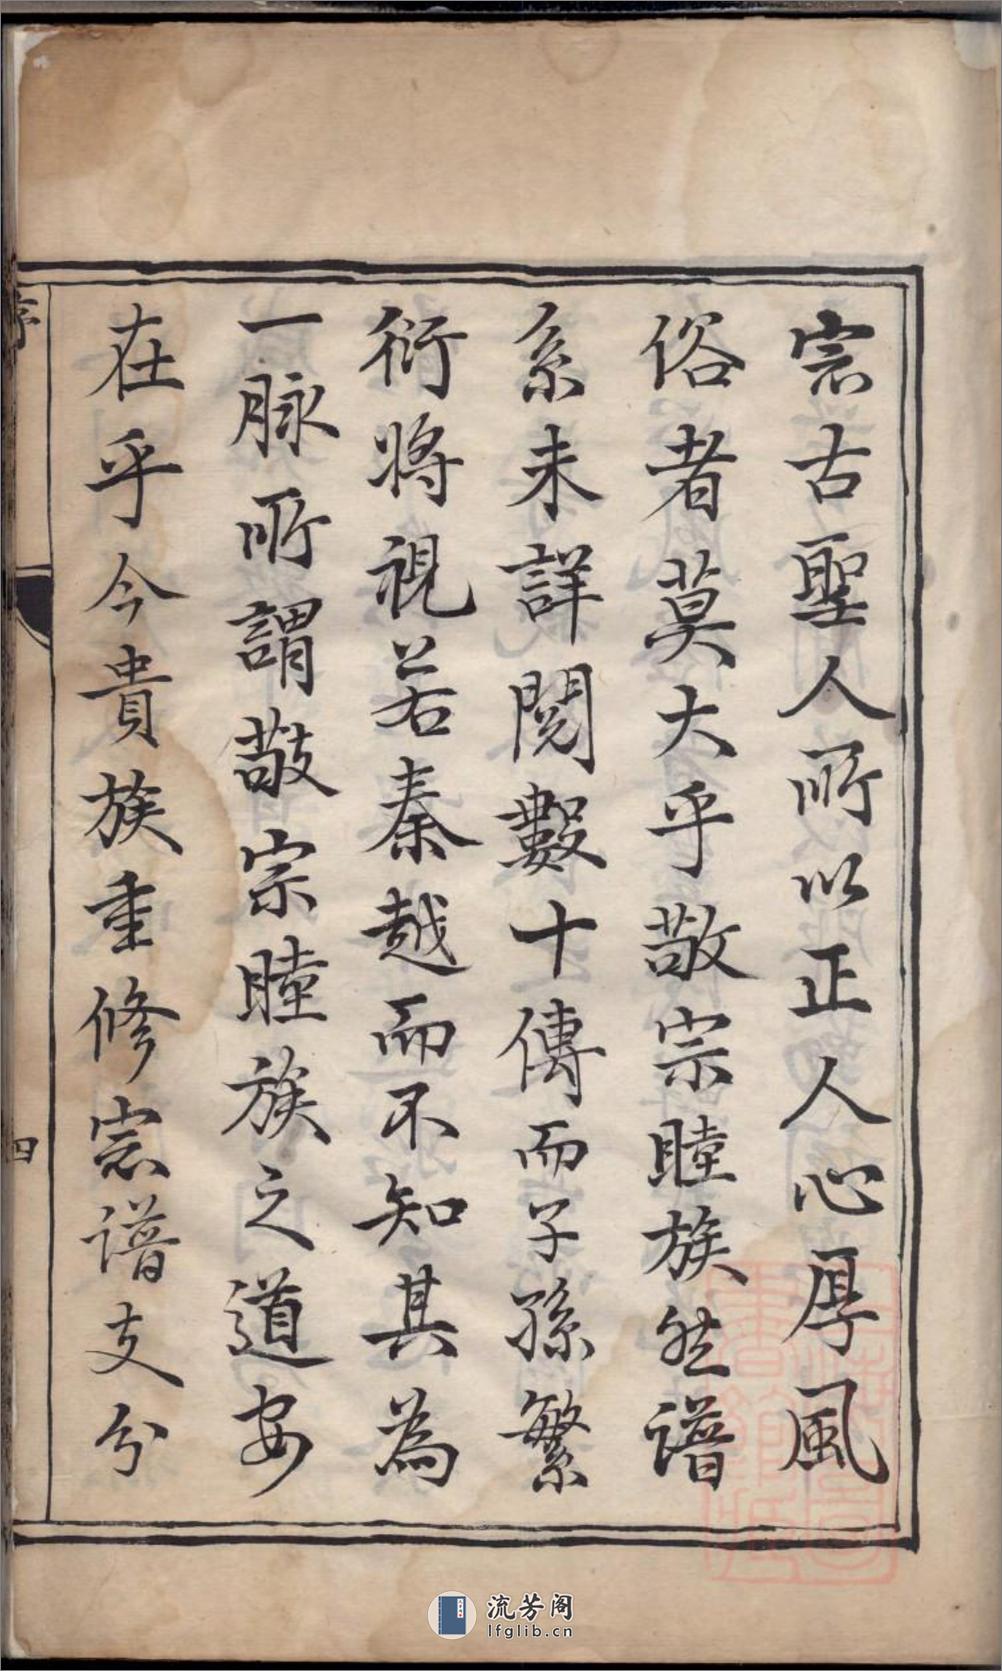 宗古聖人所以正人心厚風
俗者莫大乎敬宗睦族然譜
系未詳閱數十傳而子孫繁
衍將視若秦越而不知其為
一脉所謂敬宗睦族之道安
在乎今貴族重修宗譜支分
序
四
流芳阁
lfglib.cn